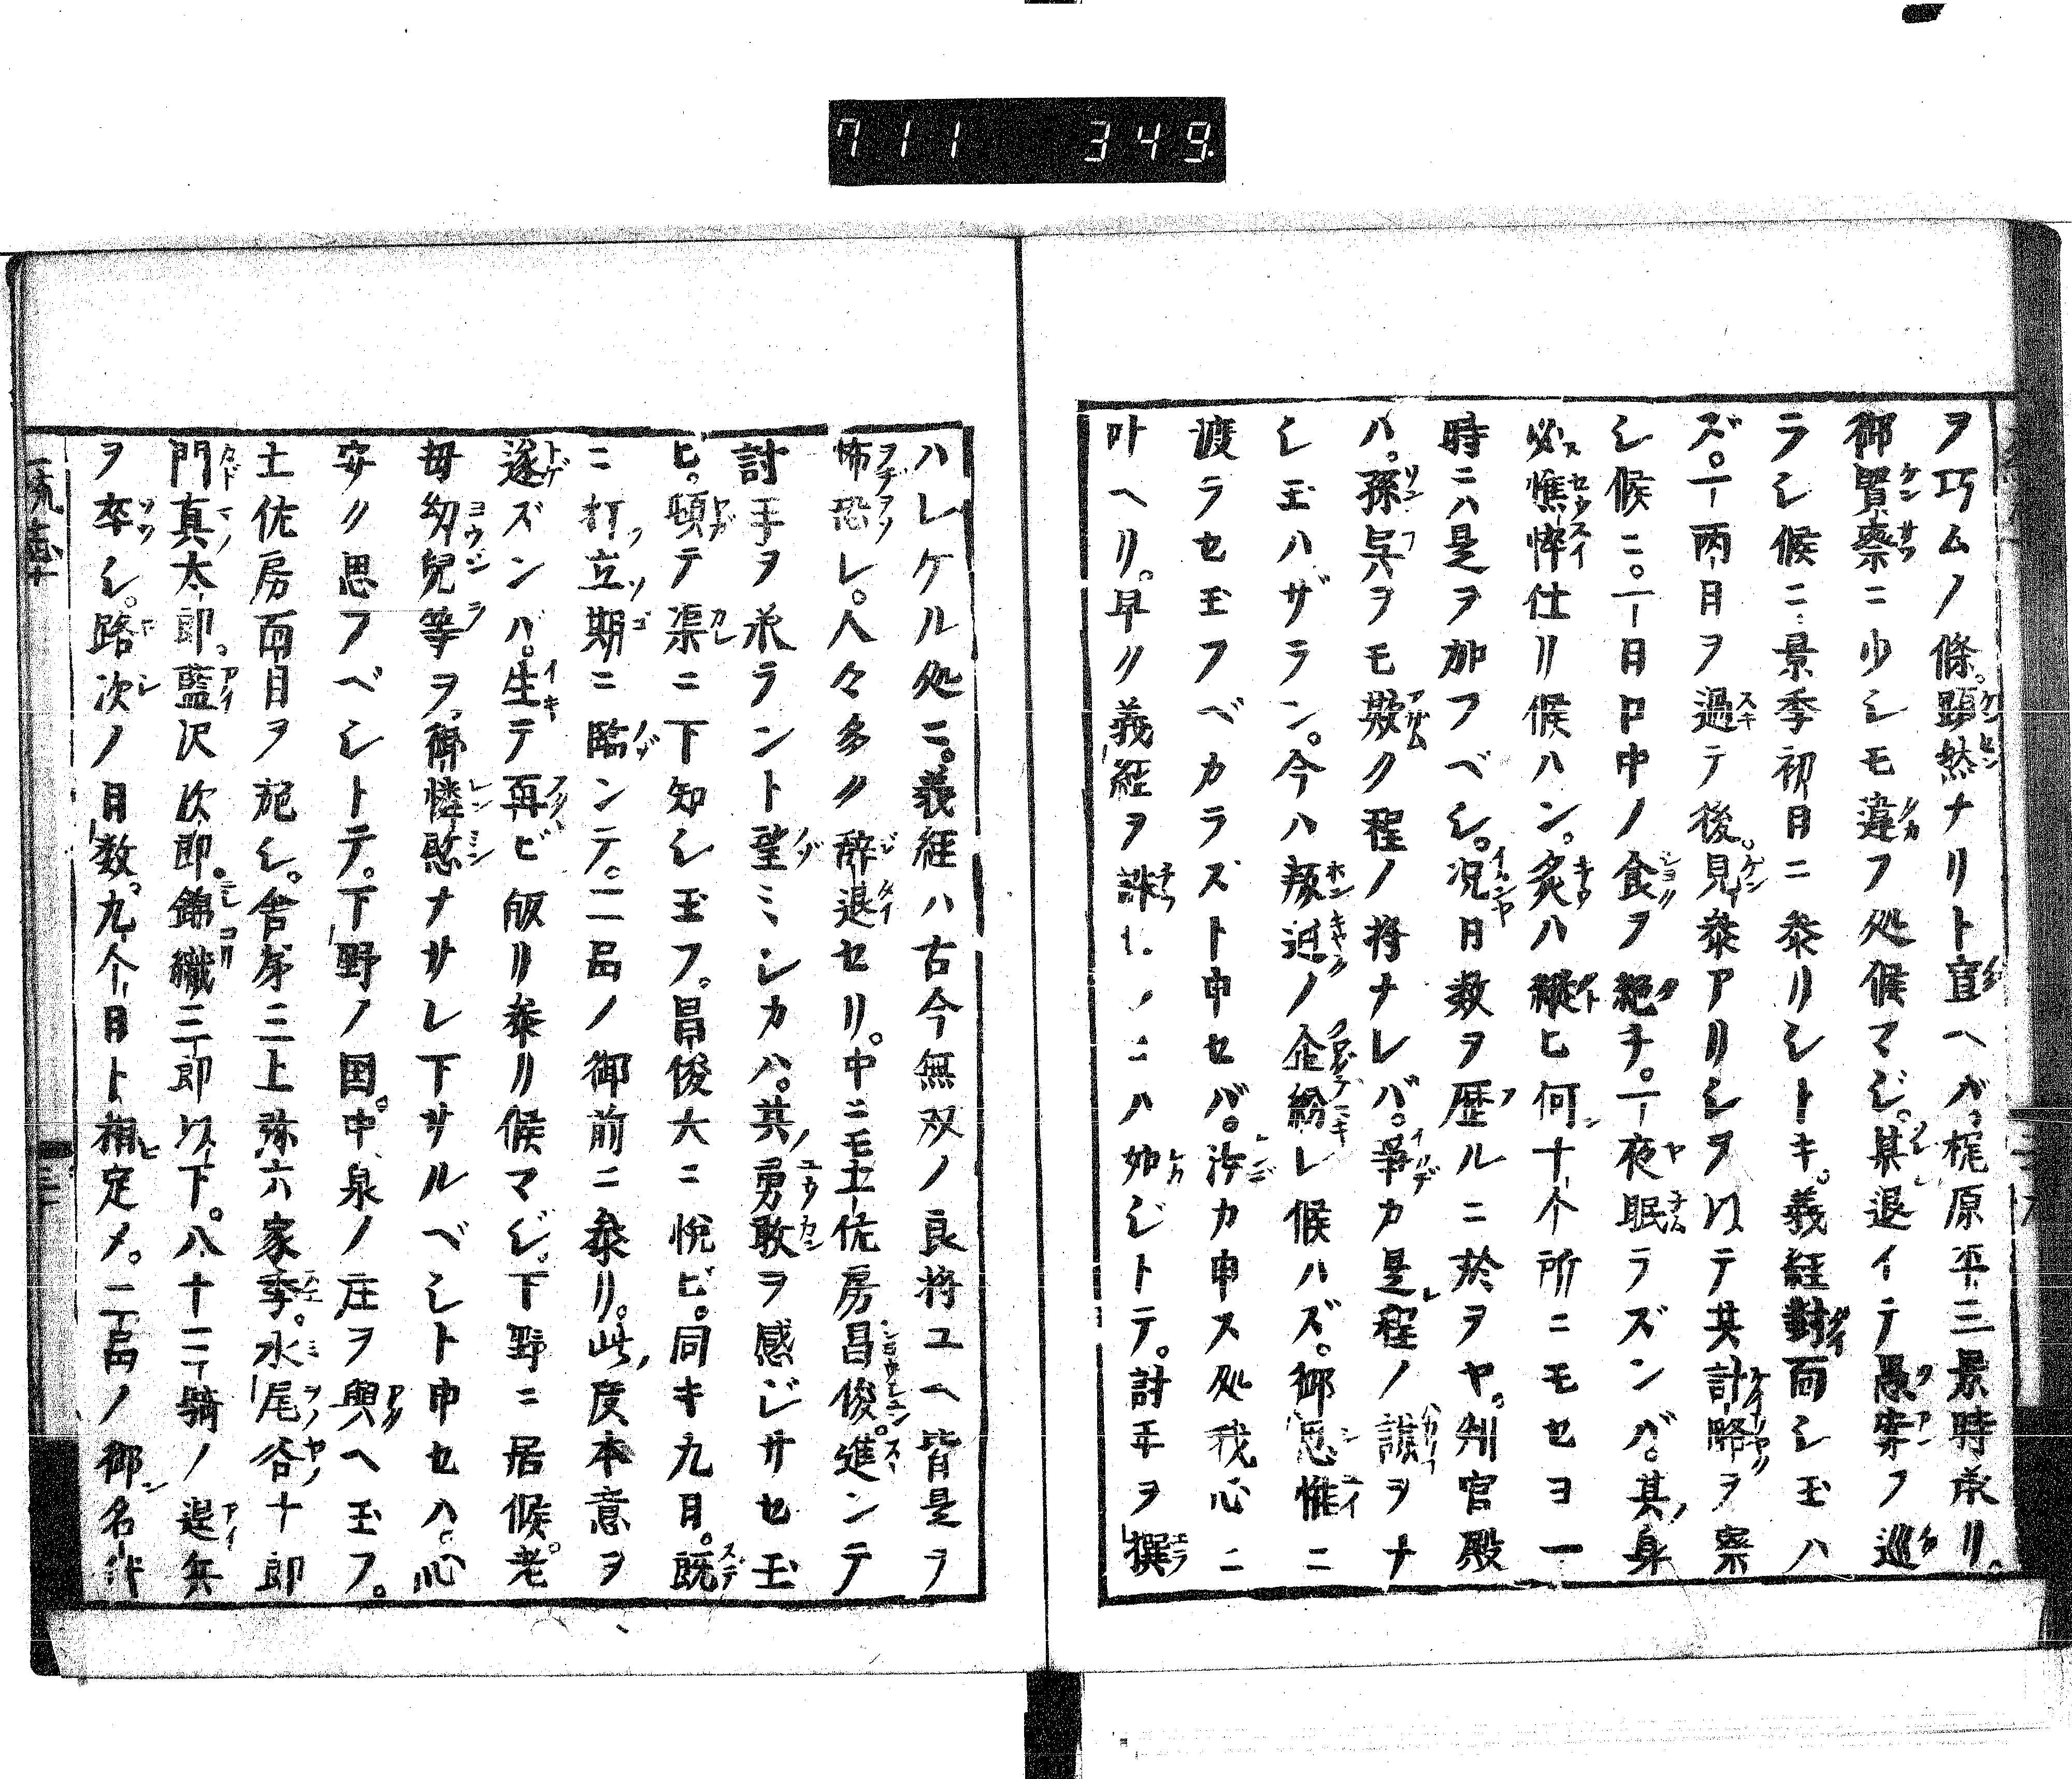 711 349
ヲ巧ムノ條。顕然ナリト宣ヘバ。梶原平三景時承リ。
御賢察ニ少シモ違フ処候マジ。某退イテ愚案フ巡
ラシ候ニ景季初日ニ参リシトキ。義経對面シ玉ハ
ズ。一両月ヲ過テ後。見参アリシヲ以テ其計略ヲ察
シ候ニ。一日口中ノ食ヲ絶チ。一夜眠ラズンバ。其身
必憔悴仕リ候ハン。灸ハ縦ヒ何十个所ニモセヨ一
時ニハ是ヲ加フベシ。況日数ヲ歴ルニ於ヲヤ。判官殿
ハ。孫呉ヲモ欺ク程ノ将ナレバ。争カ是程ノ謀ヲナ
シ玉ハザラン。今ハ叛逆ノ企紛レ候ハズ。御思惟ニ
渡ラセ玉フベカラズト申セバ。汝カ申ス処我心ニ
叶ヘリ。早ク義経ヲ誅センニハ如ジトテ。討手ヲ撰
ハレケル処ニ。義経ハ古今無双ノ良将ユヘ皆是ヲ
怖恐レ。人々多ク辞退セリ。中ニモ土佐房昌俊。進ンテ
討手ヲ承ラント望ミシカハ。其勇敢ヲ感ジサセ玉
ヒ。頓テ渠ニ下知シ玉フ。昌俊大ニ悦ビ。同キ九月。既
ニ打立期ニ臨ンテ。二品ノ御前ニ参リ。此度本意ヲ
遂ズンバ。生テ再ビ皈リ参リ候マジ。下野ニ居候。老
母幼兒等ヲ。御憐愍ナサレ下サルベシト申セハ。心
安ク思フベシトテ。下野ノ国。中泉ノ庄ヲ與ヘ玉フ。
土佐房面目ヲ施シ。舎弟三上弥六家季。水尾谷十郎
門真太郎。藍沢次郎。錦織三郎以下。八十三騎ノ逞兵
ヲ卒シ。路次ノ日数。九个日ト相定メ。二品ノ御名代